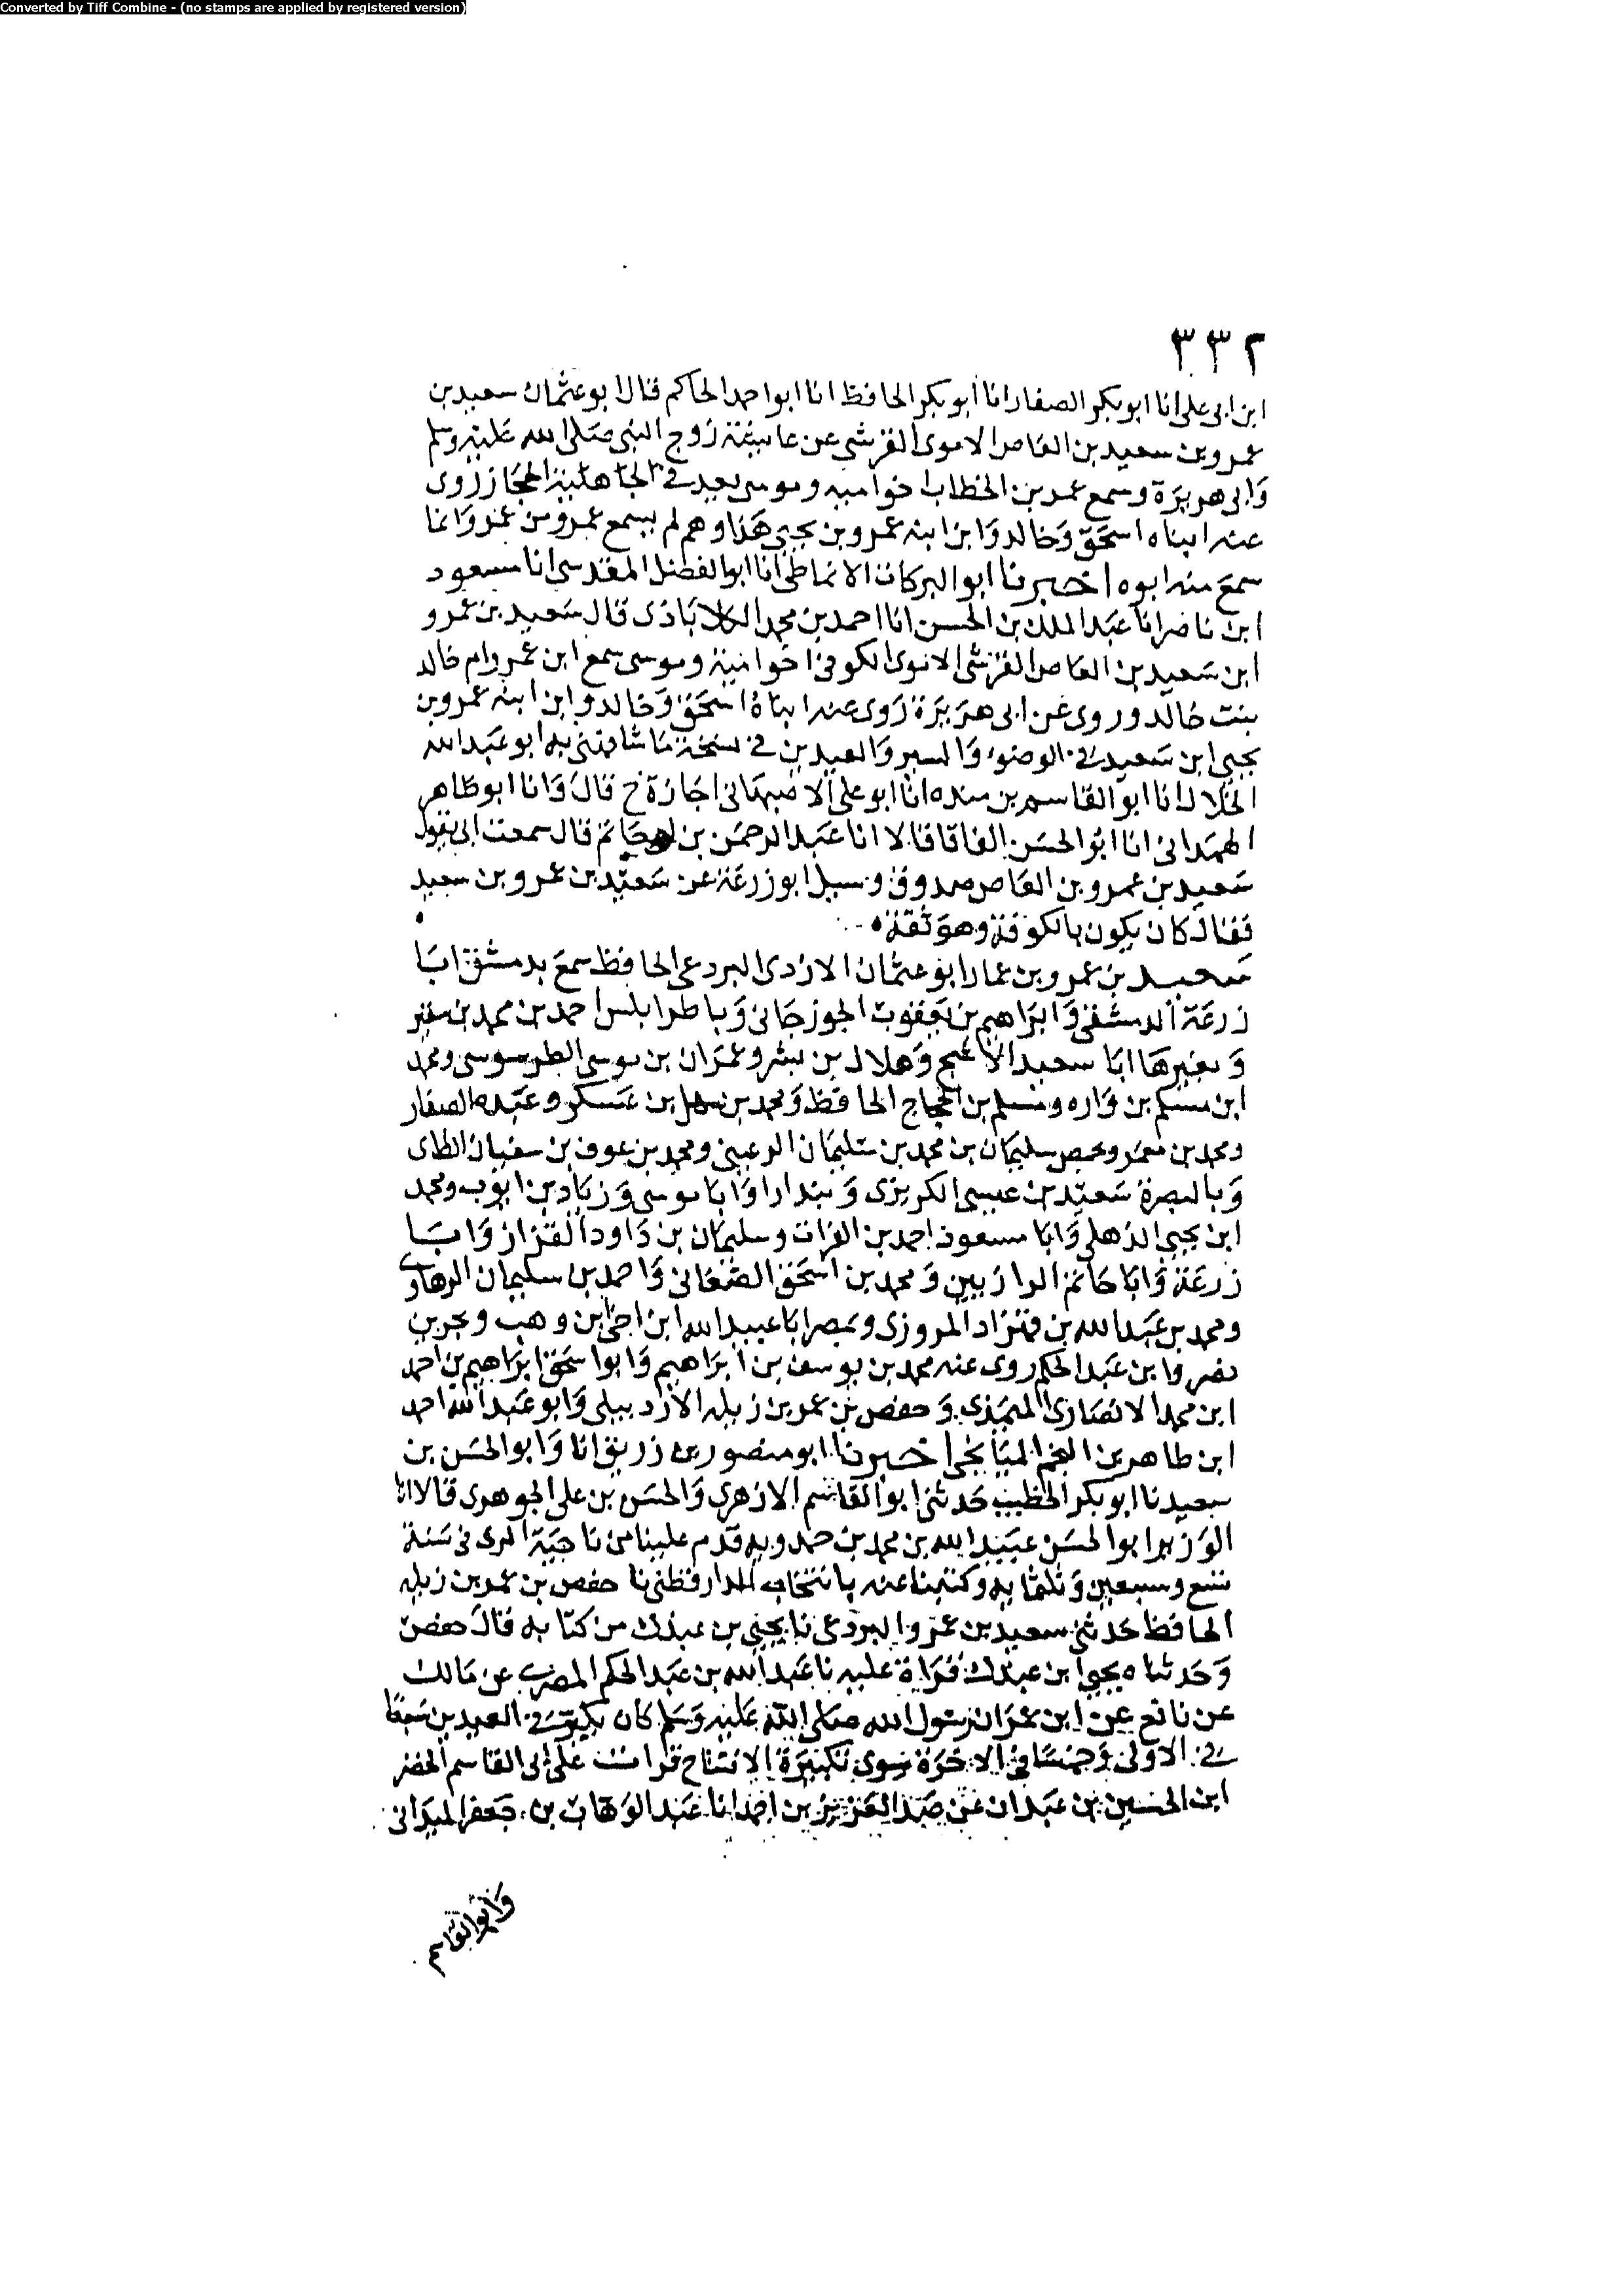 Converted by Tiff Combine - (no stamps are applied by registered version)
٣٣٢
ابن ابى على انا ابو بكر الصفار انا أبو بكر الحافظ انا ابو احمد الحاكم قال ابو عثمان سعيد بن
عمرو بن سعيد بن العاص الاموى القرشى عن عائشة زوج النبى صلى الله عليه وسلم
وابى هريرة وسمع عمر بن الخطاب اخو امية وموسى يعد فى الحجاز روى
عنه ابناه اسحق وخالد وابن ابنه عمرو بن يحيى هذا وهم لم يسمع عمرو من عمر وانما
سمع منه ابوه اخبرنا ابو البركات الانماطى انا ابو الفضل المقدسى انا مسعود
ابن ناصر انا عبد الملك بن الحسن انا احمد بن محمد الكلاباذى قال سعيد بن عمرو
ابن سعيد بن العاص القرشى الاموى الكوفى اخو امية وموسى سمع ابن عمر وام خالد
بنت خالد وروى عن ابى هريرة روى عنه ابناه اسحق وخالد وابن ابنه عمرو بن
يحيى ابن سعيد فى الوضوء والسير والعيدين فى نسخة ما شافهنى به ابو عبد الله
الخلال انا ابو القاسم بن منده انا ابو على الاصبهانى اجازة ح قال وانا ابو طاهر
الهمدانى انا ابو الحسن الفافا قالا انا عبد الرحمن بن ابى حاتم قال سمعت ابى يقول
سعيد بن عمرو بن العاص صدوق وسيل ابو زرعة عن سعيد بن عمرو بن سعيد
فقال كان يكون بالكوفة وهو ثقة
سعيد بن عمرو بن عمار ابو عثمان الازدى البردعى الحافظ سمع بدمشق ابا
زرعة الدمشقى وابراهيم بن يعقوب الجوزجانى وباطرابلس احمد بن محمد بن
وبغيرها ابا سعيد الاشج وهلال بن بشر وعمران بن موسى الطرسوسى ومحمد
ابن مسلم بن واره ومسلم بن الحجاج الحافظ ومحمد بن سهل بن عسكر وعبدة الصفار
ومحمد بن معمر وبحمص سليمان بن محمد بن سليمان الرعينى ومحمد بن عوف بن سفيان الطاى
وبالبصرة سعيد بن عيسى الكريزى وبندارا وابا موسى وزياد بن ايوب ومحمد
ابن يحيى الذهلى وابا مسعود احمد بن الفرات وسليمان بن داود القزاز وابا
زرعة وابا حاتم الرازيين ومحمد بن اسحق الصغانى واحمد بن سليمان الرهاوى
ومحمد بن عبد الله بن قهزاد المروزى وبمصر ابا عبيد الله ابن اخى ابن وهب وبحر بن
نصر وابن عبد الحكم روى عنه محمد بن يوسف بن ابراهيم وابو اسحق ابراهيم بن احمد
ابن محمد الانصارى الميمذى وحفص بن عمر بن زبله الاردبيلى وابو عبد الله احمد
ابن طاهر بن النجم الميانجى اخبرنا ابو منصور بن زريق انا وابو الحسن بن
سعيد نا ابو بكر الخطيب حدثنى ابو القاسم الازهرى والحسن بن على الجوهرى قالا انا
الوزير ابو الحسن عبيد الله بن محمد بن حمدويه قدم علينا من ناحية الرى فى سنة
تسع وسبعين وثلثمايه وكتبنا عنه بانتخاب الدارقطنى نا حفص بن عمر بن زبله
الحافظ حدثنى سعيد بن عمرو البردعى نا يحيى بن عبدك من كتابه قال حفص
وحدثناه يحيى ابن عبدك قراة عليه نا عبد الله بن عبد الحكم المصرى عن مالك
عن نافع عن ابن عمر ان رسول الله صلى الله عليه وسلم كان يكبر فى العيدين سبعا
فى الاولى وخمسا فى الاخرة سوى تكبيرة الافتتاح قرات على ابى القاسم الخضر
ابن الحسين بن عبدان عن عبد العزيز بن احمد انا عبد الوهاب بن جعفر الميدانى
وابو القاسم